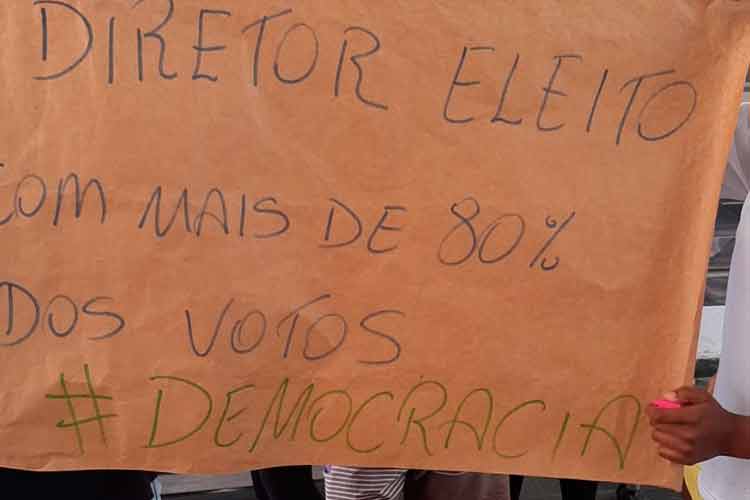 DIRETOR ELEITO
COM MAIS DE 80%
DOS VOTOS
#DEMOCRACIA